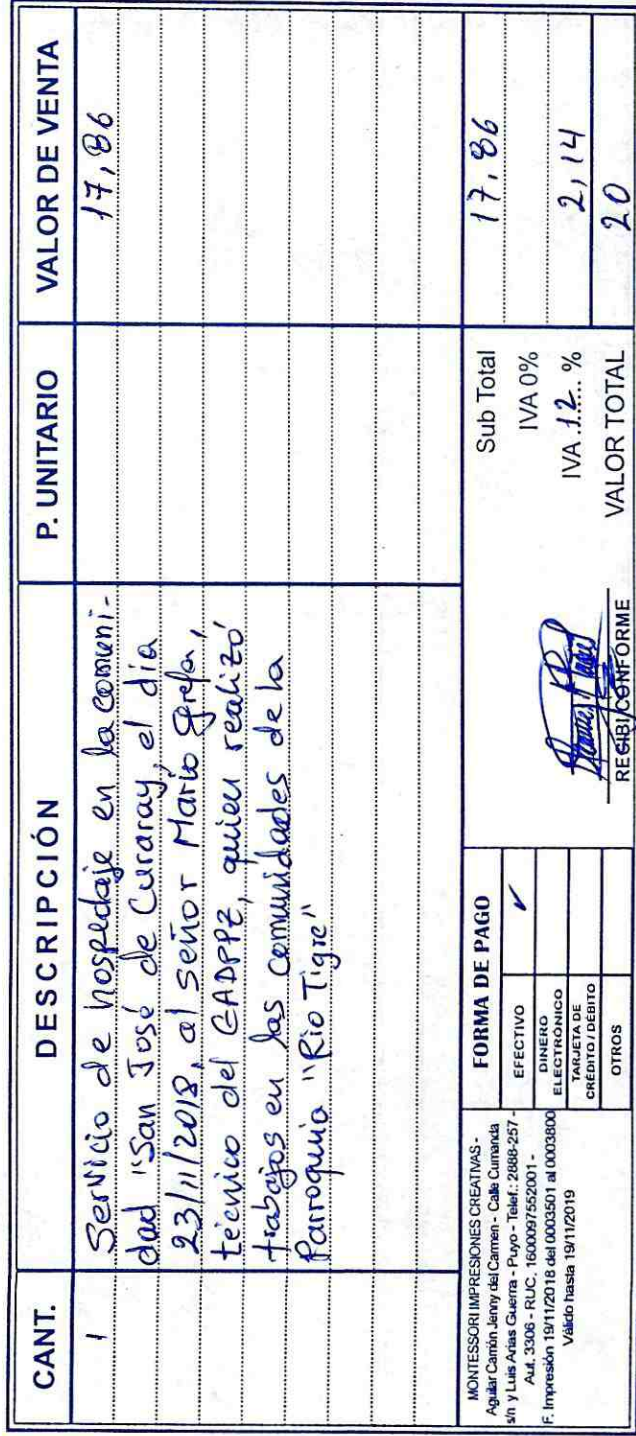 CANT. DESCRIPCIÓN P. UNITARIO VALOR DE VENTA
1 Servicio de hospedaje en la comuni- 17,86
dad "San José de Curaray, el día
23/11/2018, al señor Mario Grefa,
técnico del GADPPZ, quien realizó
trabajos en las comunidades de la
Parroquia "Río Tigre"
MONTESSORI IMPRESIONES CREATIVAS -
Aguilar Carrión Jenny del Carmen - Calle Cumanda
s/n y Luis Arias Guerra - Puyo - Telef.: 2888-257 -
Aut. 3306 - RUC. 1600097552001 -
F. Impresión 19/11/2018 del 0003501 al 0003800
Válido hasta 19/11/2019
FORMA DE PAGO
EFECTIVO ✓
DINERO
ELECTRÓNICO
TARJETA DE
CRÉDITO / DÉBITO
OTROS
RECIBI CONFORME
Sub Total 17,86
IVA 0%
IVA 12 % 2,14
VALOR TOTAL 20